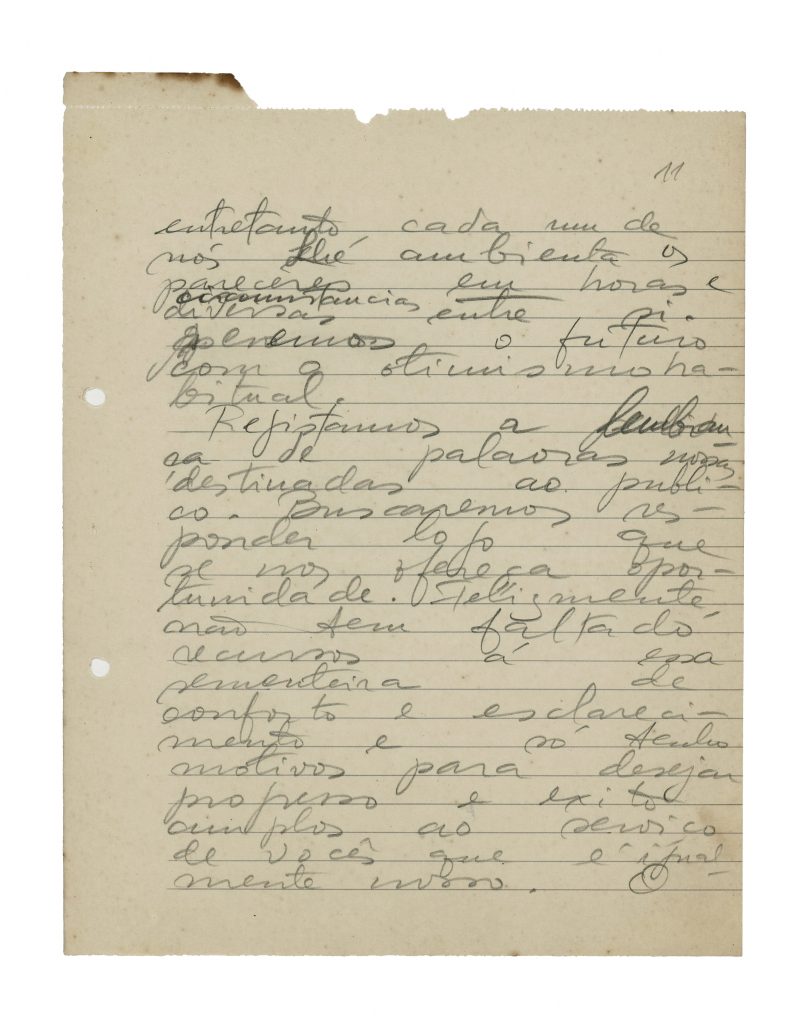 11
entretanto, cada um de
nós lhe ambienta os
pareceres em horas e
circunstancias
diversas entre si.
Esperemos o futuro
com o otimismo ha-
bitual.
Registamos a lembran
ça de palavras nossas
destinadas ao publi-
co. Buscaremos res-
ponder logo que
se nos ofereça opor-
tunidade. Felizmente,
não tem faltado
recursos á essa
sementeira de
conforto e esclareci-
mento e só tenho
motivos para desejar
progresso e exito
amplos ao serviço
de vocês que é igual-
mente nosso.